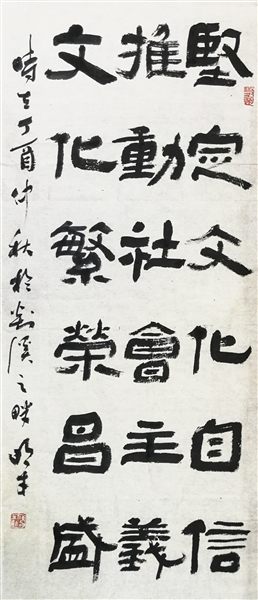 堅定文化自信
推動社會主義
文化繁榮昌盛
時在丁酉仲秋於剡溪之畔明才